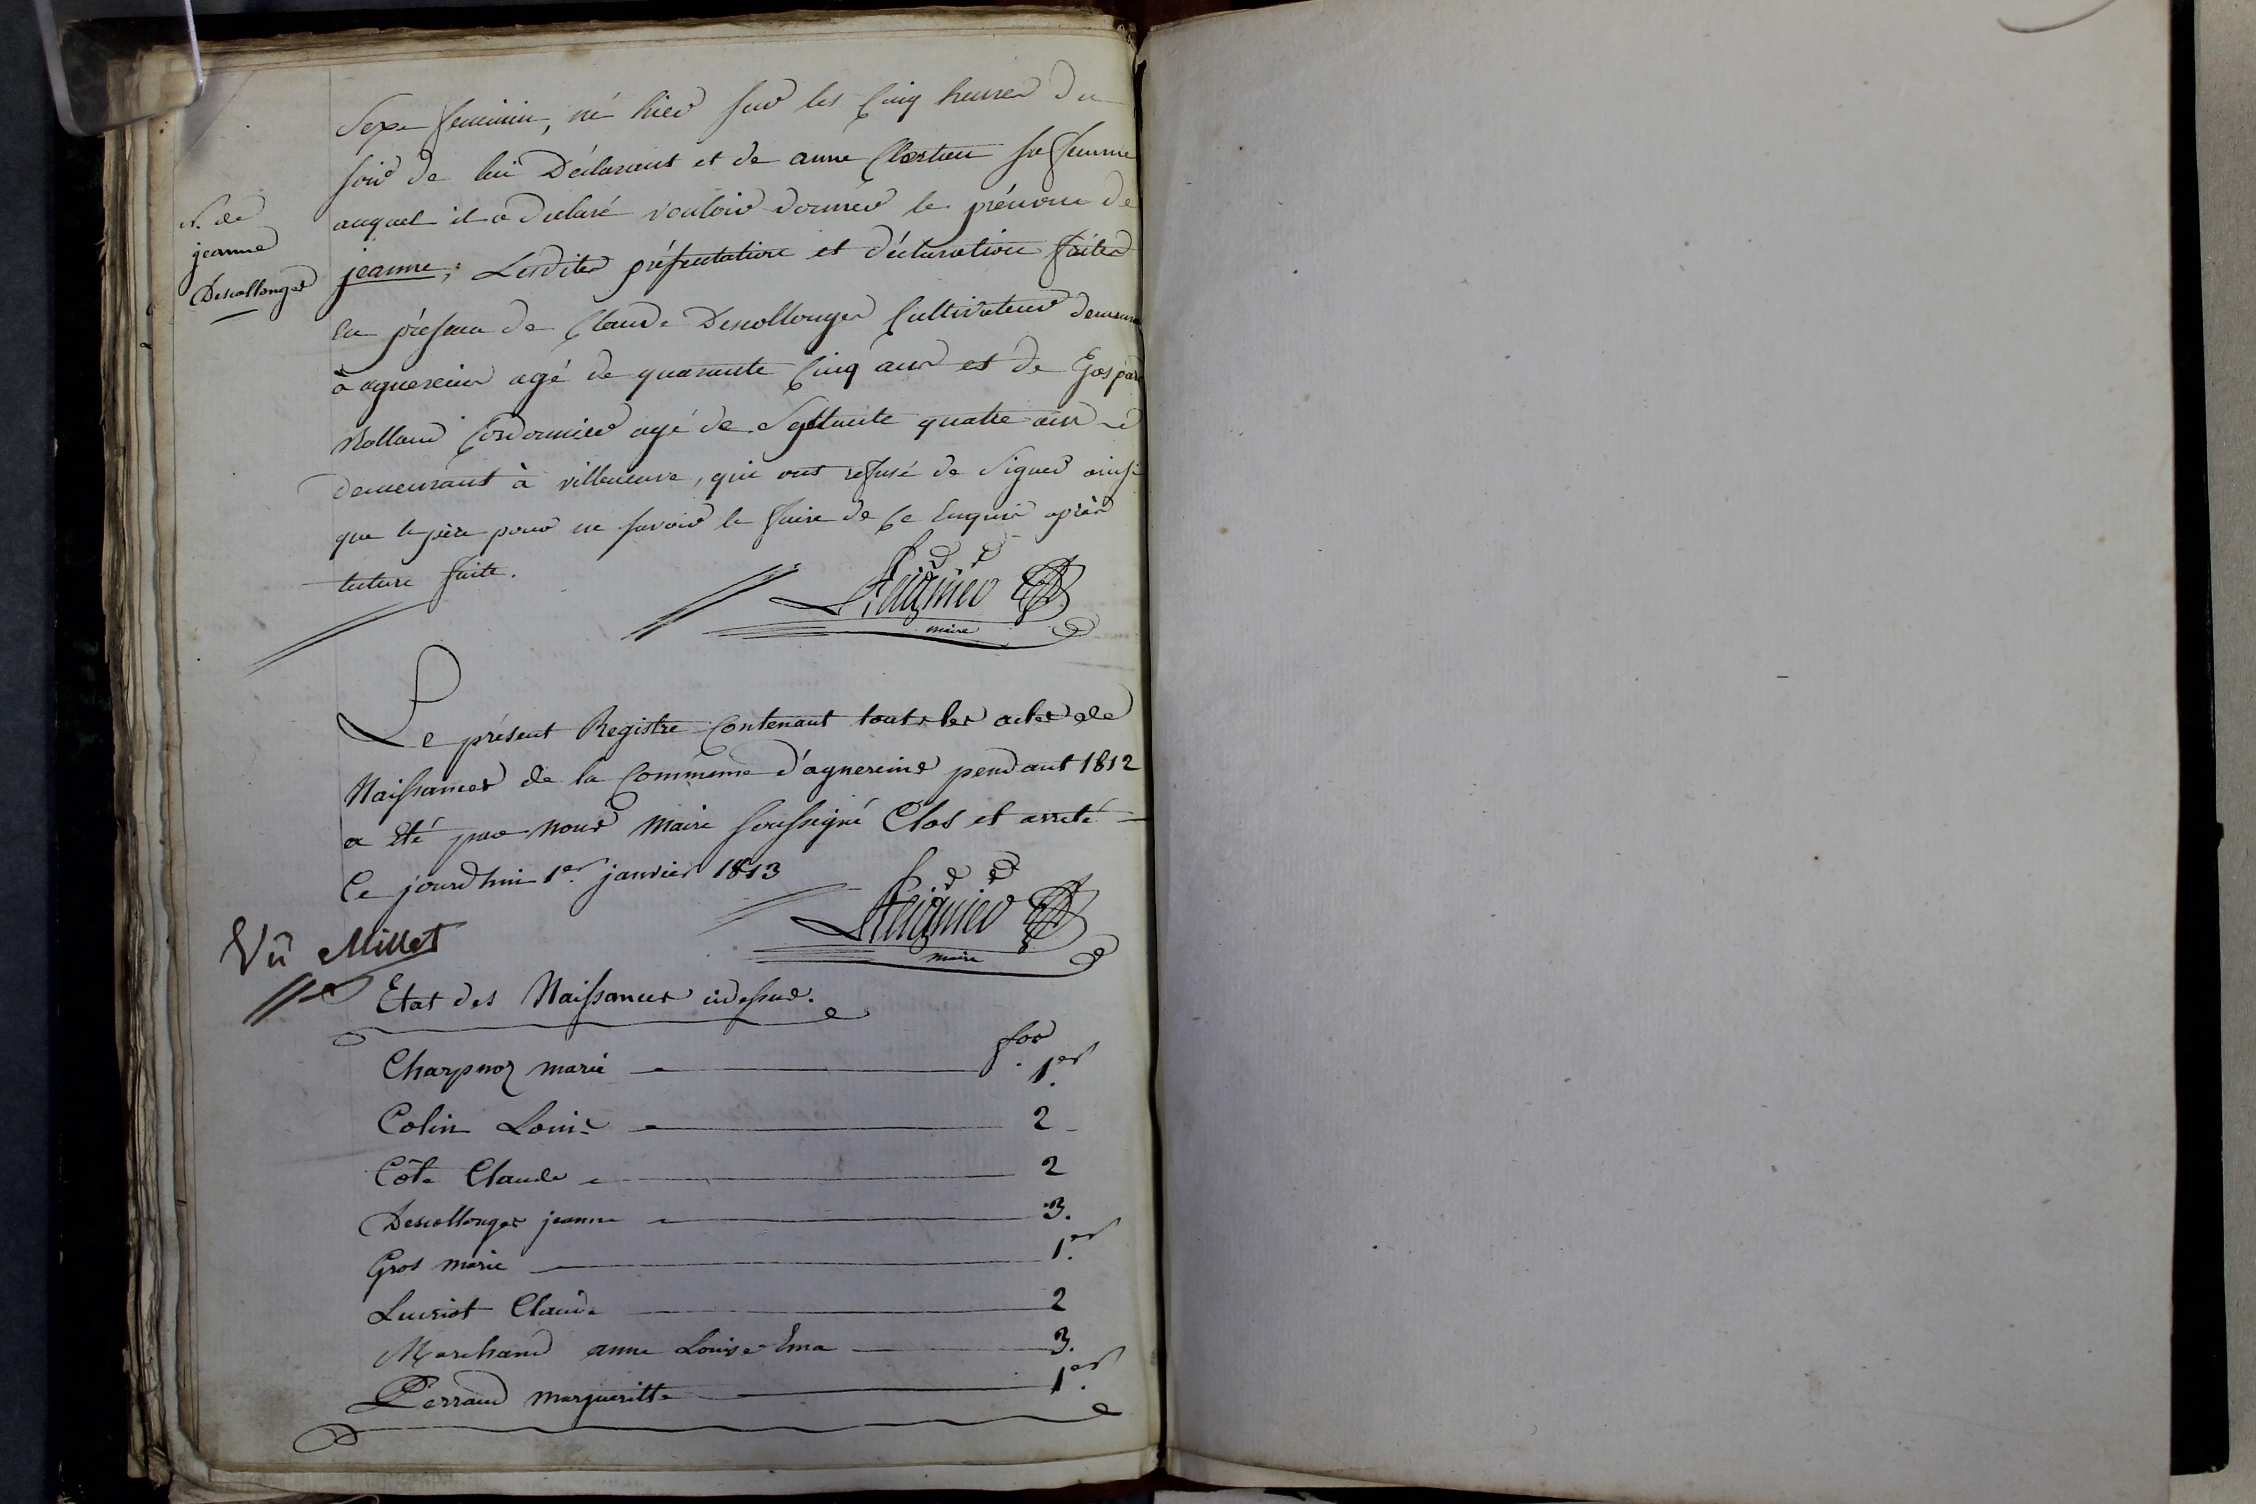 Sexe feminin, né hier sur les Cinq heures du
soir de lui Déclarant et de anne sa femme
auquel il a declaré vouloir donner le prénom de
N. de
jeanne
Descollonges
jeanne, Lesdites présentation et déclaration faites
En présence de Claude Descollonges Cultivateur demeurant
à agnereins agé de quarante Cinq ans et de Gaspard
Rolland Cordonnier agé de Septante quatre ans
demeurant à villeneuve, qui ont refusé de Signer ainsi
que le père pour ne savoir le faire de ce Enquis après
lecture faite.
maire
Le présent Registre Contenant touts les actes de
Naissances de la Commune d'agnereins pendant 1812
a Eté par nous Maire soussigné Clos et arreté
Ce jourdhui 1er janvier 1813
maire
Vû Millet
Etat des Naissances cidessus.
fos
Charpnoz marie 1er
Colin Louis 2
Côte Claude 2
Descollonges jeanne 3.
Gros marie 1er
Claude 2
Marchand anne Louise Ema 3.
Perraud margueritte 1er